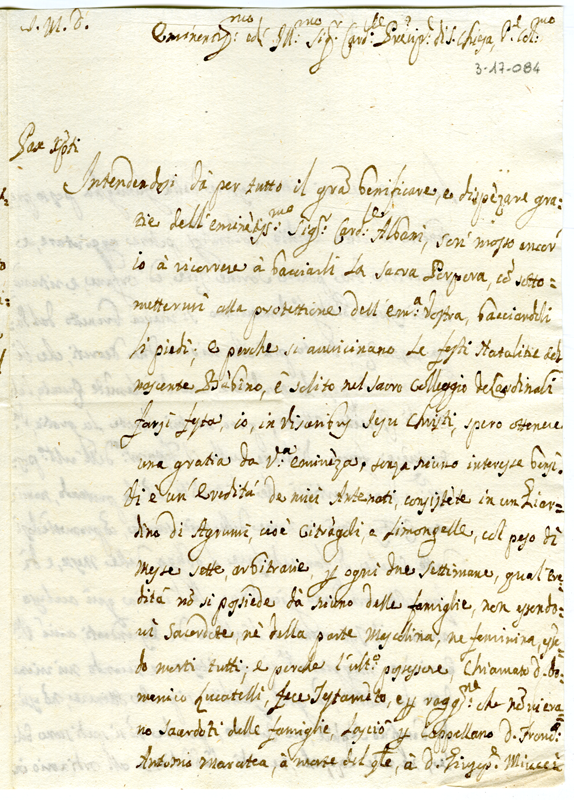 J. M. J.
Eminentis.mo ed Ill.mo Sig.r Card.le Preip.e di S. Chiesa, P.e Col.mo
3-17-084
Pax Xpti
Intendendosi dà per tutto il grã benificare, e dispẽzare gra=
tie dell'eminẽtiss.mo Sig.r Card.le Albani, son' mosso ancor'
io à ricorrere à bacciarli la sacra Porpora, cõ sotto=
mettermi alla protettione dell'em.a Vostra, bacciandoli
li piedi; e perche si auvicinano le feste Natalitie del
nascente Bãbino, è solito nel sacro Colleggio de Cardinali
farsi festa, io, in Visceribus Jesu Christi, spero ottenere
una gratia da V.a eminẽza, senza niuno interesse bensì.
Vi è un' Eredità de miei Antenati, consistẽte in un Giar=
dino di Agrumi, cioè Citrãgoli, e Limongelle, col peso di
Messe sette, arbitrarie p ogni due settimane, qual Ere=
dità nõ si possiede dà niuno delle famiglie, non essendo=
vi Sacerdote, nè della parte Mascolina, ne feminina, essẽ=
do morti tutti; e perche l'ult.o possessore Chiamato D. Do=
menico Lucatelli fece Testamẽto, e p ragg.ne che nõ vi era=
no Sacerdoti delle famiglie, lasciò p Cappellano D. Franc.o
Antonio Maratea, à morte del q.le, à D. Giusep.e Minucci